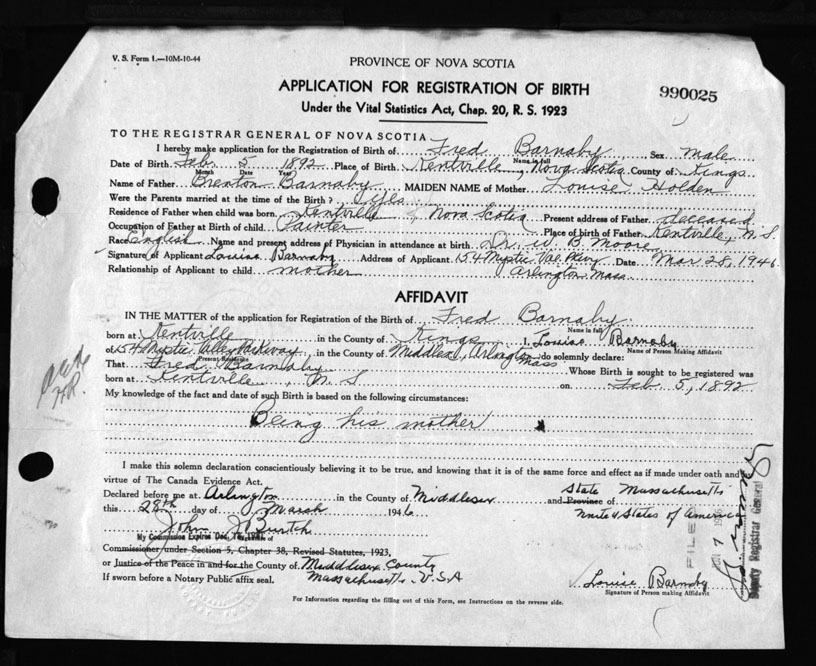 V. S. Form 1.—10M-10-44
PROVINCE OF NOVA SCOTIA
APPLICATION FOR REGISTRATION OF BIRTH
990025
Under the Vital Statistics Act, Chap. 20, R. S. 1923
TO THE REGISTRAR GENERAL OF NOVA SCOTIA
I hereby make application for the Registration of Birth of Fred Barnaby Sex male
Name in full
Date of Birth Feb. 5 1892 Place of Birth Kentville, Nova Scotia County of Kings
Month Date Year
Name of Father Brenton Barnaby MAIDEN NAME of Mother Louise Holden
Were the Parents married at the time of the Birth? Yes
Residence of Father when child was born Kentville, Nova Scotia Present address of Father deceased
Occupation of Father at Birth of child Painter Place of birth of Father Kentville, N. S.
Race English Name and present address of Physician in attendance at birth Dr. W. B. Moore
Signature of Applicant Louise Barnaby Address of Applicant 154 Mystic Val. Pkwy Date Mar 28, 1946
Relationship of Applicant to child mother Arlington Mass.
AFFIDAVIT
IN THE MATTER of the application for Registration of the Birth of Fred Barnaby
Name in full
born at Kentville in the County of Kings I, Louise Barnaby
Name of Person Making Affidavit
of 154 Mystic Valley Parkway, in the County of Middlesex, Arlington Mass do solemnly declare:
Present Residence
That Fred Barnaby Whose Birth is sought to be registered was
born at Kentville, N. S. on Feb 5, 1892
My knowledge of the fact and date of such Birth is based on the following circumstances:
Being his mother
I make this solemn declaration conscientiously believing it to be true, and knowing that it is of the same force and effect as if made under oath and by
virtue of The Canada Evidence Act.
Declared before me at Arlington in the County of Middlesex and Province of State Massachusetts
this 28th day of March 1946 United States of America
John J.
My Commission Expires Dec.
Commissioner under Section 5, Chapter 38, Revised Statutes, 1923,
or Justice of the Peace in and for the County of Middlesex County
If sworn before a Notary Public affix seal. Massachusetts. U.S.A
Louise Barnaby
Signature of Person making Affidavit
For Information regarding the filling out of this Form, see Instructions on the reverse side.
FILED
Deputy Registrar General